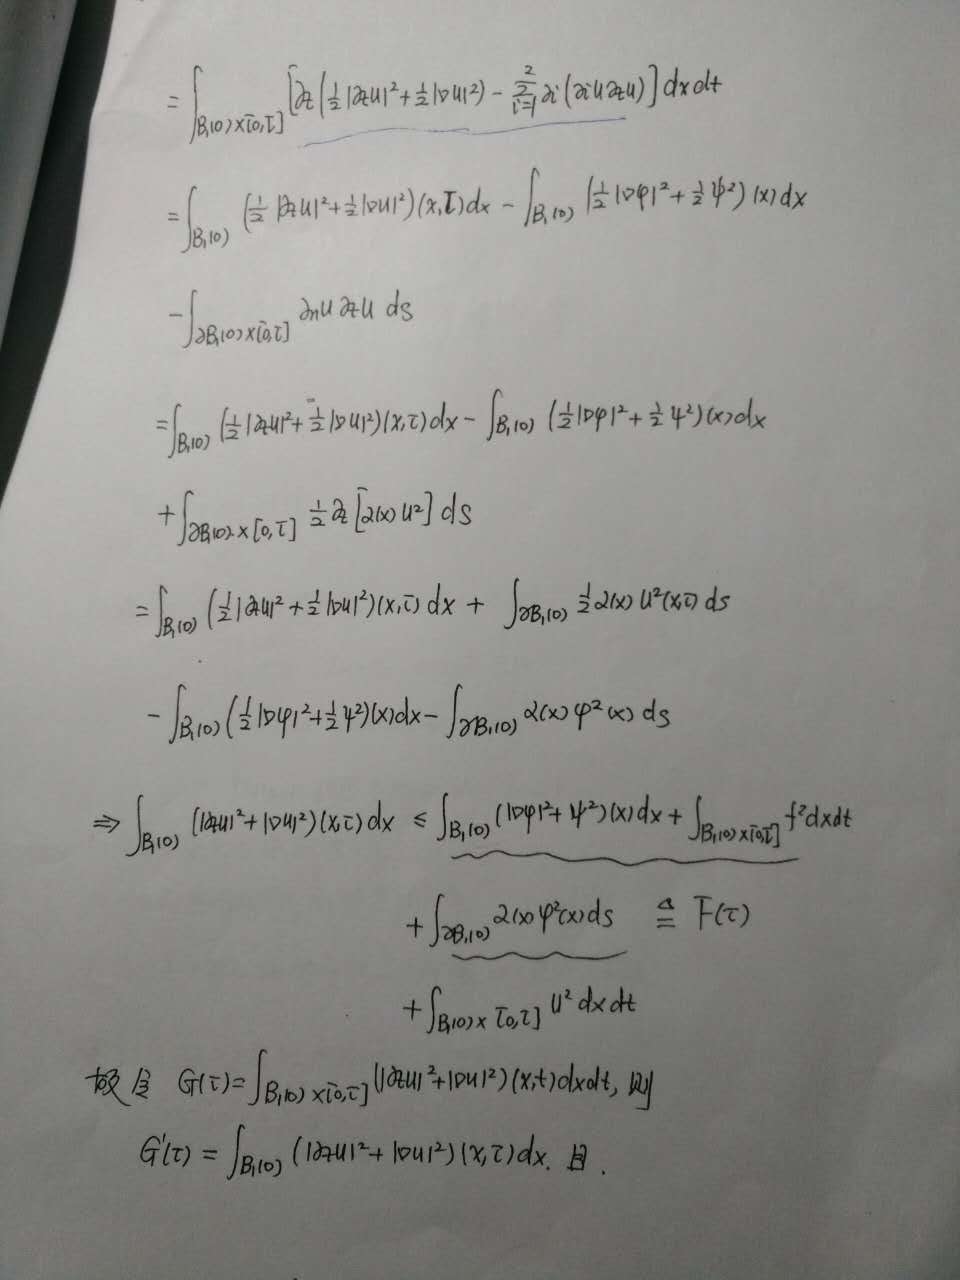 = ∫_{B₁(0)×[0,τ]} [∂t(½|∂tu|²+½|∇u|²) − Σ_{i=1}^{2} ∂i(∂iu∂tu)] dxdt
= ∫_{B₁(0)} (½|∂tu|²+½|∇u|²)(x,τ)dx − ∫_{B₁(0)} (½|∇φ|²+½ψ²)(x)dx
− ∫_{∂B₁(0)×[0,τ]} ∂nu ∂tu ds
= ∫_{B₁(0)} (½|∂tu|²+½|∇u|²)(x,τ)dx − ∫_{B₁(0)} (½|∇φ|²+½ψ²)(x)dx
+ ∫_{∂B₁(0)×[0,τ]} ½∂t[α(x)u²] ds
= ∫_{B₁(0)} (½|∂tu|²+½|∇u|²)(x,τ)dx + ∫_{∂B₁(0)} ½α(x)u²(x,τ)ds
− ∫_{B₁(0)} (½|∇φ|²+½ψ²)(x)dx − ∫_{∂B₁(0)} α(x)φ²(x)ds
⇒ ∫_{B₁(0)} (|∂tu|²+|∇u|²)(x,τ)dx ≤ ∫_{B₁(0)} (|∇φ|²+ψ²)(x)dx + ∫_{B₁(0)×[0,τ]} f²dxdt
+ ∫_{∂B₁(0)} α(x)φ²(x)ds ≜ F(τ)
+ ∫_{B₁(0)×[0,τ]} u²dxdt
故令 G(τ)=∫_{B₁(0)×[0,τ]} (|∂tu|²+|∇u|²)(x,t)dxdt, 则
G'(τ) = ∫_{B₁(0)} (|∂tu|²+|∇u|²)(x,τ)dx. 且.